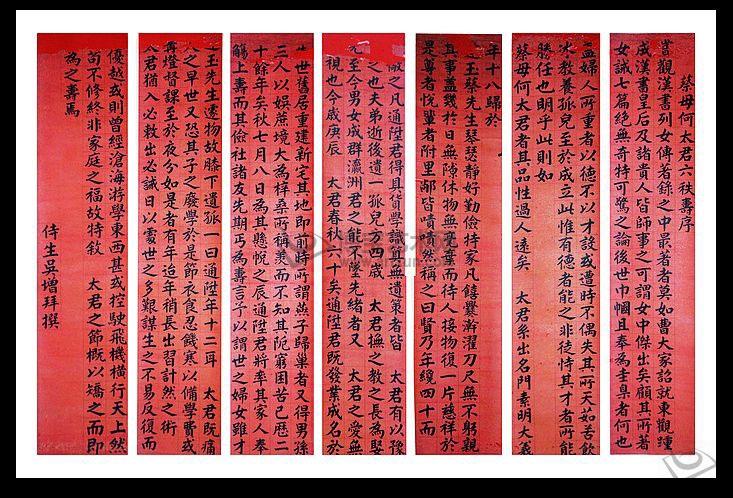 蔡母何太君六秩壽序
嘗觀漢書列女傳者錄之中最著者莫如曹大家詔就東觀踵
成漢書皇后及諸貴人皆師事之可謂女中傑出矣顧其所著
女誡七篇絕無奇特可驚之論後世巾幗且奉為圭臬者何也
盖婦人所重者以德不以才設或遭時不偶失其所天茹苦飲
冰教養孤兒至於成立此惟有德者能之非徒恃其才者所能
勝任也明乎此則如
蔡母何太君者其品性過人遠矣 太君系出名門素明大義
年十八歸於
玉蔡先生琴瑟靜好勤儉持家凡饎爨澣濯刀尺無不躬親
其事盖幾於日無隙休物無棄葉而待人接物復一片慈祥於
是尊者悅輩者附里鄰皆嘖嘖然稱之曰賢乃年纔四十而
之凡通陞君得具貨學識具無遺策者皆 太君有以豫
之也夫弟逝後遺一孤兒 四歲 太君撫之教之長為娶
至今男女成群瀛洲君之能不墜先緒者又 太君之愛無
視也今歲庚辰 太君春秋六十矣通陞君既發業成名於
世舊居重建新宅其地即前時所謂燕子歸巢者又得男孫
三人以娛蔗境大為梓桑所稱羨而不知其阨窮困苦已歷二
十餘年矣秋七月八日為其懸帨之辰通陞君將率其家人奉
觴上壽而其儉社諸友先期丐為壽言予以謂世之婦女雖才
玉先生遽物故膝下遺孤一曰通陞年十二耳 太君既痛
人之早世又恐其子之廢學於是節衣食忍饑寒以備學費或
再燈督課至於夜分如是者有年迨年稍長出習計然之術
君猶入必敕出必誡日以處世之多艱謀生之不易反復而
優越或則曾經滄海游學東西甚或控駛飛機橫行天上然
苟不修終非家庭之福故特敘 太君之節概以矯之而即
為之壽焉
侍生吳增拜撰